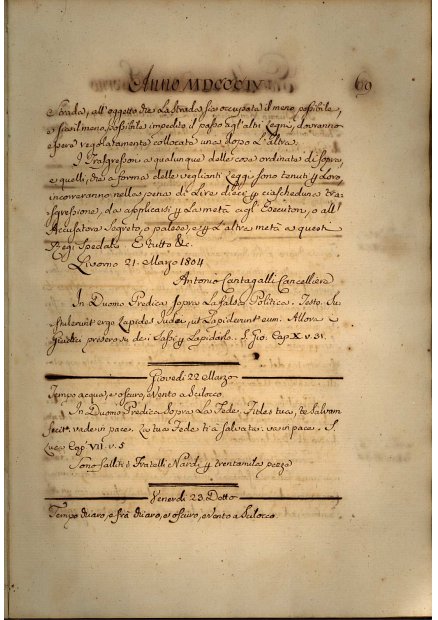 Anno MDCCCIV
69
Strada, all'oggetto che la strada sia occupata il meno possibile,
e sia il meno possibile impedito il passo agl'altri Legni, dovranno
essere regolatamente collocate una dopo l'altra.
I Trasgressori a qualunque delle cose ordinate di sopra,
e quelli, che a forma delle veglianti Leggi sono tenuti p Loro,
incorreranno nella pena di Lire dieci p ciascheduna tra=
sgressione, da applicarsi p la metà agl'Esecutori, o all'
Accusatore segreto, o palese, e p l'altra metà a questi
Regi Spedali. E tutto &c.
Livorno 21. Marzo 1804
Antonio Cantagalli Cancelliere
In Duomo Predica sopra la falsa Politica. Testo. Su=
stulerunt ergo Lapides Judei, ut Lapiderunt eum. Allora i
Giudei presero su de i Sassi p Lapidarlo. S. Gio. Cap X v. 31.
Giovedì 22 Marzo
Tempo acqua, e oscuro, e Vento a Scilocco
In Duomo Predica sopra La Fede. Fides tua, te Salvam
fecit. vade in pace. La tua Fede ti à salvata. va in pace. S.
Luca Cap VII. v. 5
Sono falliti i Fratelli Nardi p trentamila pezze
Venerdì 23. Detto
Tempo chiaro, e frà chiaro, e oscuro, e Vento a Scilocco.